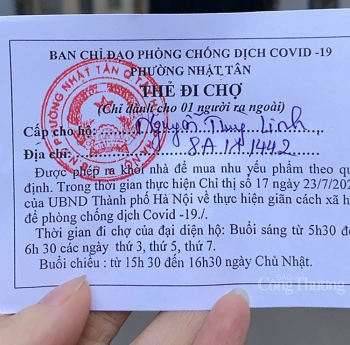 BAN CHỈ ĐẠO PHÒNG CHỐNG DỊCH COVID -19
PHƯỜNG NHẬT TÂN
THẺ ĐI CHỢ
(Chỉ dành cho 01 người ra ngoài)
Cấp cho hộ: Nguyễn Thùy Linh
Địa chỉ: 8A
Được phép ra khỏi nhà để mua nhu yếu phẩm theo qu
định. Trong thời gian thực hiện Chỉ thị số 17 ngày 23/7/20
của UBND Thành phố Hà Nội về thực hiện giãn cách xã h
để phòng chống dịch Covid -19./.
Thời gian đi chợ của đại diện hộ: Buổi sáng từ 5h30 đ
6h 30 các ngày thứ 3, thứ 5, thứ 7.
Buổi chiều: từ 15h 30 đến 16h30 ngày Chủ Nhật.
BÁO
Công Thương